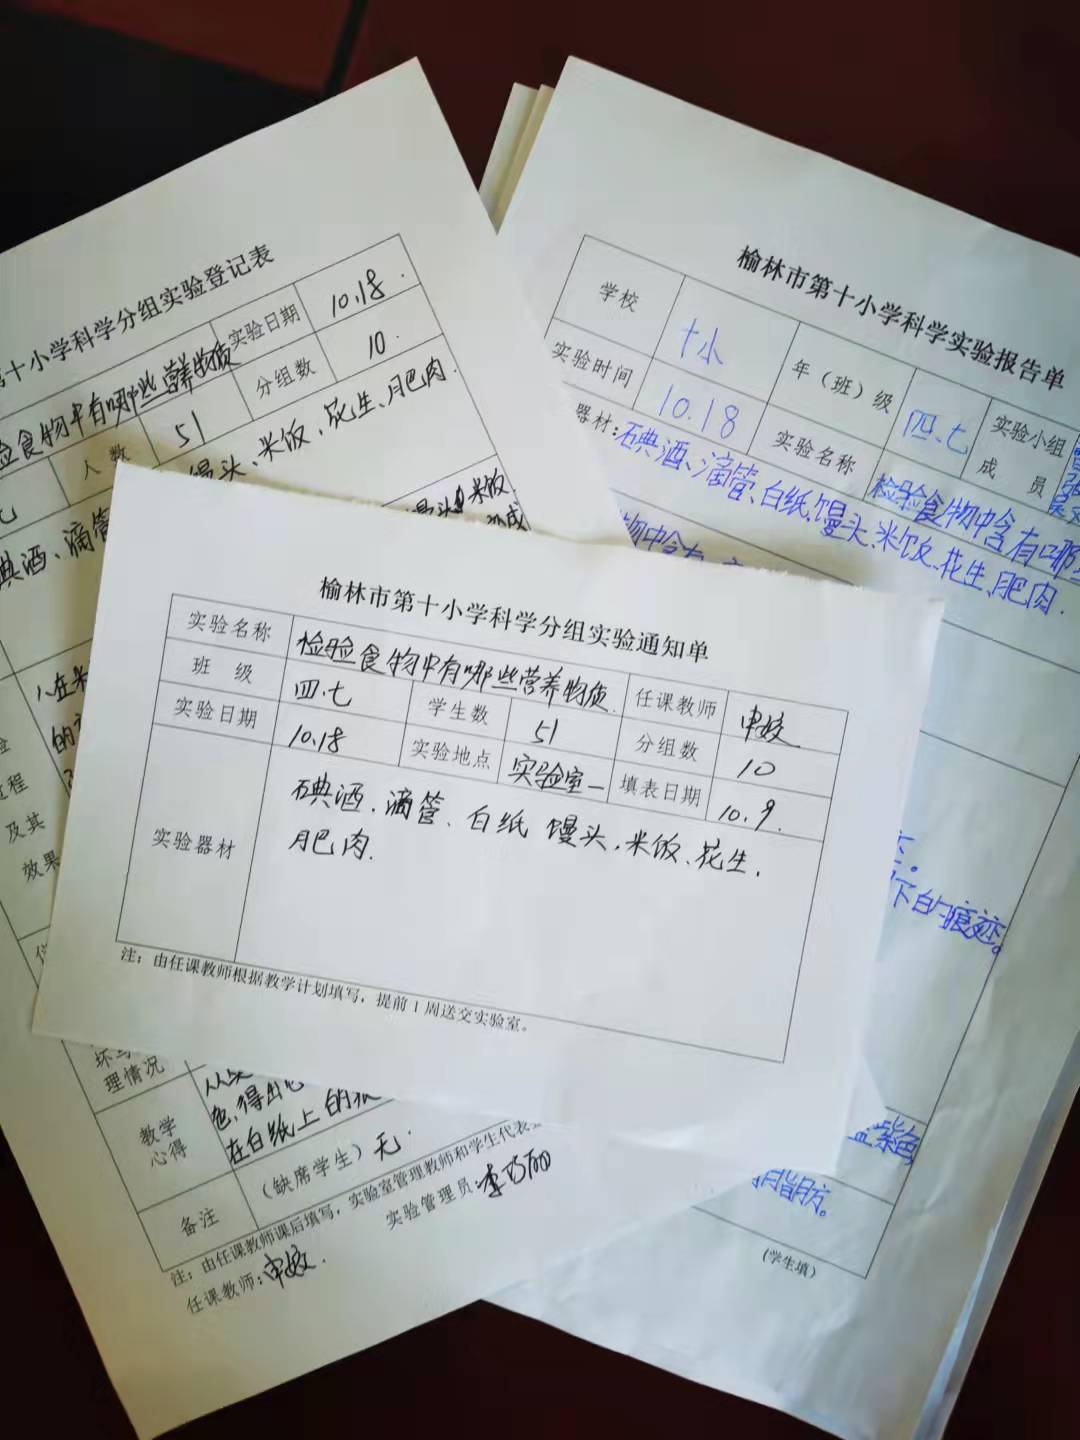 第十小学科学分组实验登记表
验食物中有哪些营养物质
实验日期
10.18.
人数
51
分组数
10.
典酒、滴管
馒头、米饭、花生、肥肉.
1.在米
过程
及其
效果
理情况
教学
心得
色,得出
在白纸上的痕
备注
(缺席学生)无.
注:由任课教师课后填写,实验室管理教师和学生代表
任课教师:申姣.
实验管理员:李巧丽
榆林市第十小学科学实验报告单
学校
十小
年(班)级
四.七
实验小组
成员
实验时间
10.18
实验名称
检验食物中含有哪些
器材:碘酒、滴管、白纸、馒头、米饭、花生、肥肉.
物中含有
下的痕迹。
蓝紫色
脂肪。
(学生填)
榆林市第十小学科学分组实验通知单
实验名称
检验食物中有哪些营养物质.
任课教师
申姣
班 级
四.七
学生数
51
分组数
10
实验日期
10.18
实验地点
实验室一
填表日期
10.9.
实验器材
碘酒、滴管、白纸 馒头、米饭、花生.
肥肉.
注:由任课教师根据教学计划填写,提前1周送交实验室。